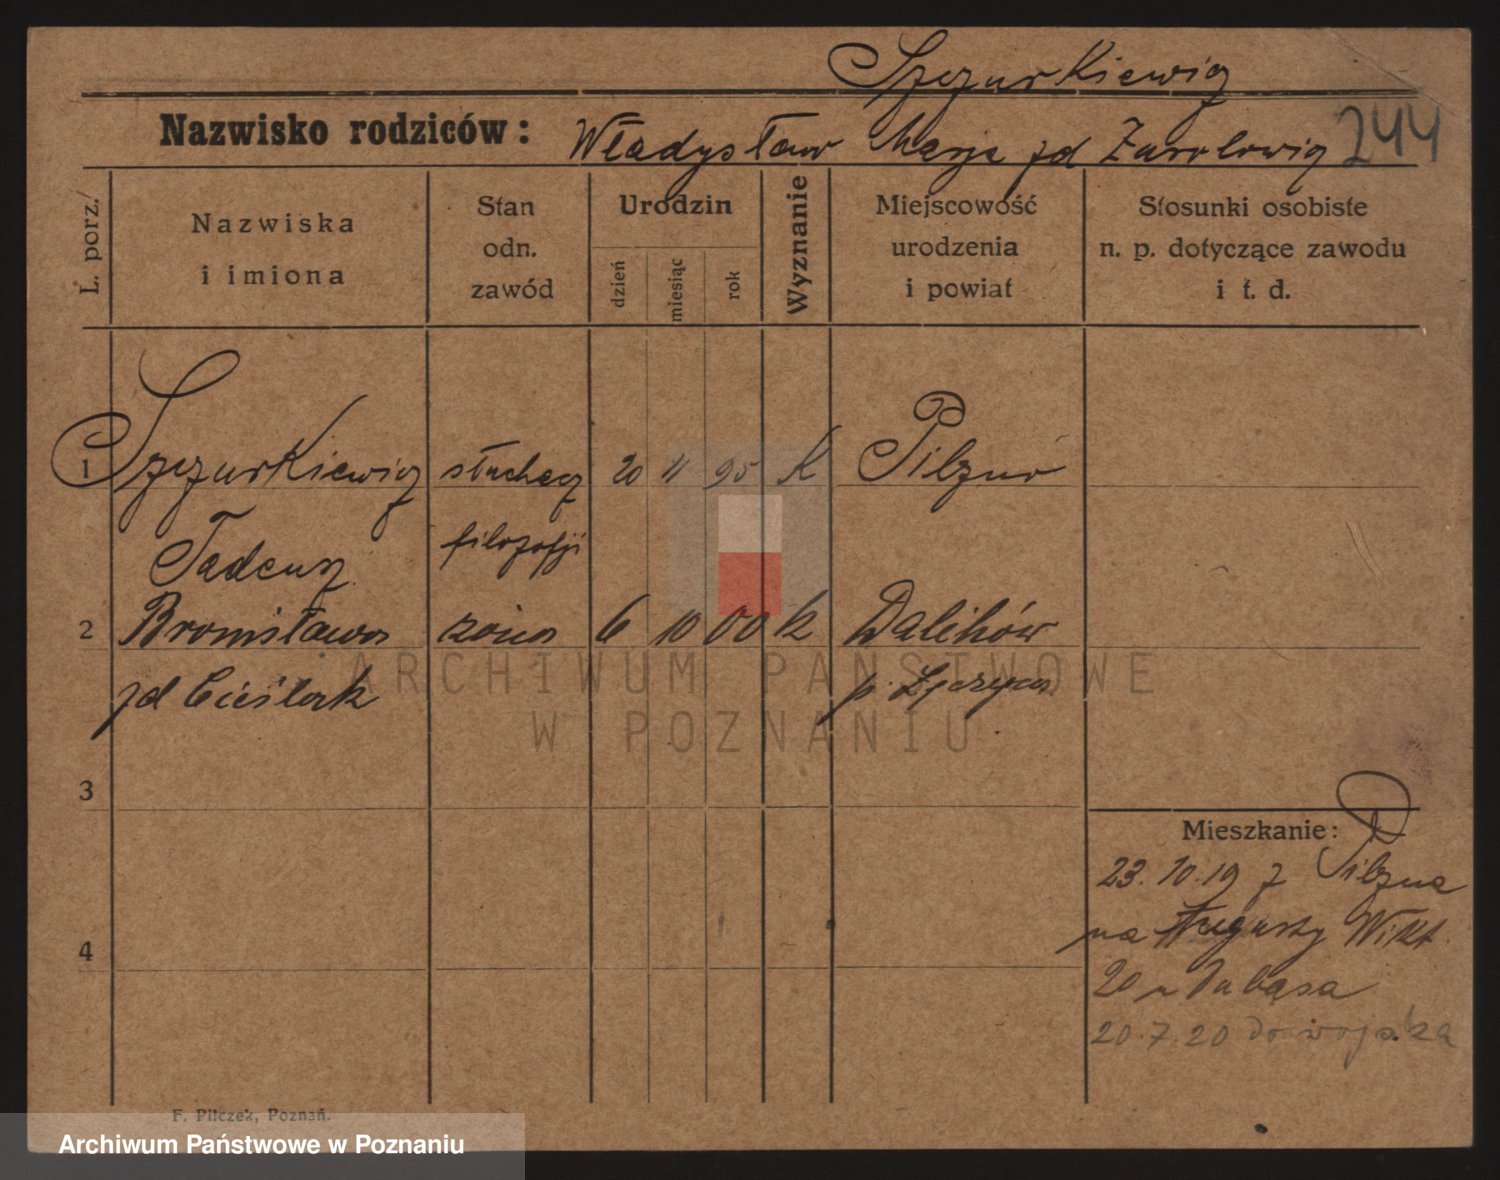 Szczurkiewicz
Nazwisko rodziców: Władysław Marja zd
244
L. porz.
Nazwiska
i imiona
Stan
odn.
zawód
Urodzin
dzień
miesiąc
rok
Wyznanie
Miejscowość
urodzenia
i powiat
Stosunki osobiste
n. p. dotyczące zawodu
i t. d.
1 Szczurkiewicz słuchacz 20 11 95 K Pilzno
Tadeusz filozofji
2 Bronisława żona 6 10 00 k Dalików
zd Cieślak p. Łęczyca
3
4
Mieszkanie:
23.10.19 z Pilzna
na Augusty Wikt.
20 u Dubąsa
20.7.20 Do wojska
F. Pilczek, Poznań.
ARCHIWUM PAŃSTWOWE
W POZNANIU
Archiwum Państwowe w Poznaniu